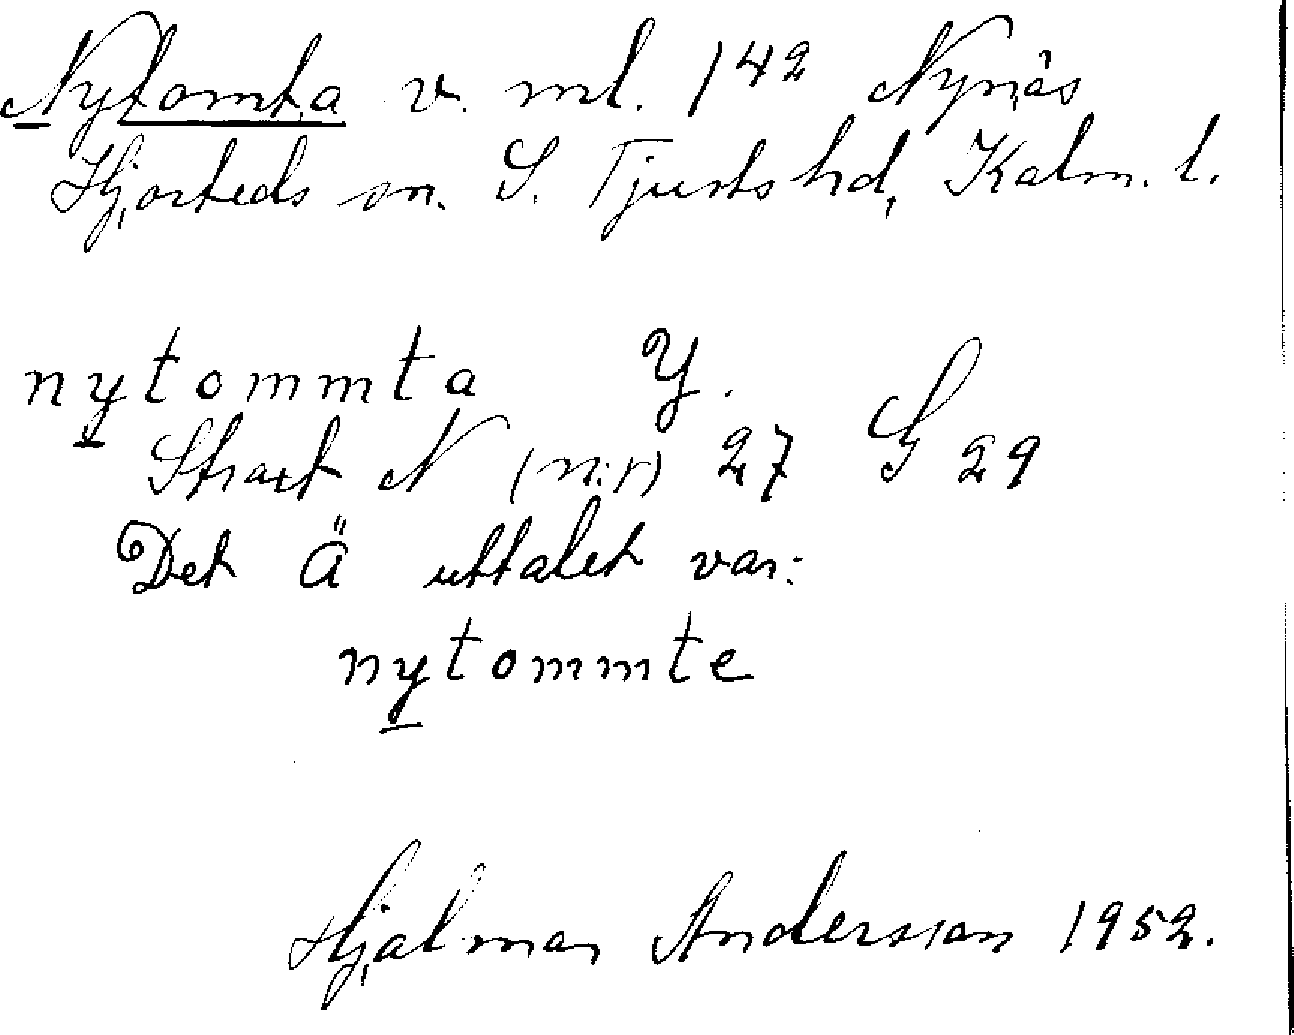 Nytomta v. ml. 142 Nynäs
Hjorteds sn. S. Tjusts hd, Kalm. l.
nytommta Y.
Strax N (n:r) 27 G 29
Det Ä uttalet var:
nytommte
Hjalmar Andersson 1952.